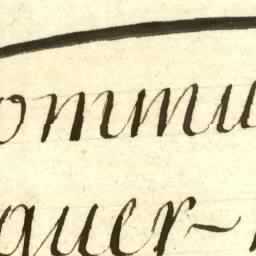 ommu
quer~